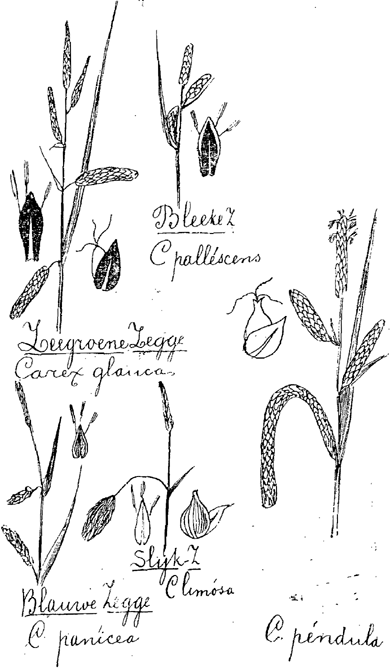 Bleeke Z
C palléscens
Zeegroene Zegge
Carex glauca
Slijk-Z
C limósa
Blauwe Zegge
C. panícea
C. péndula